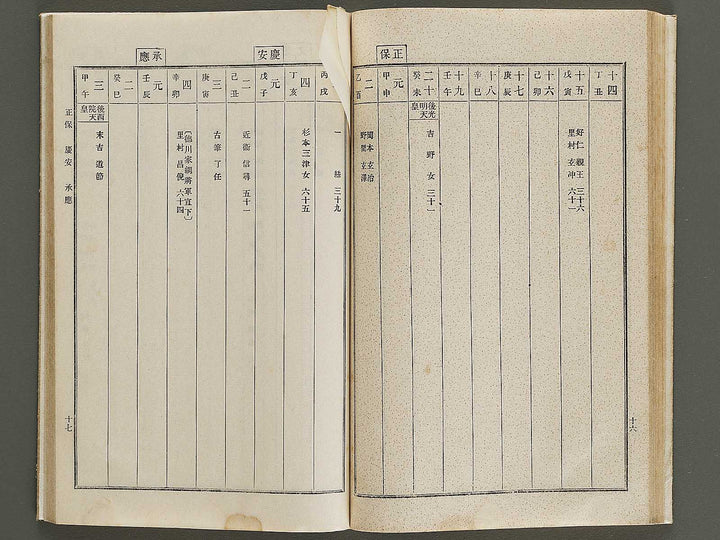 十四 丁丑
十五 戊寅 好仁親王 三十六
里村玄冲 六十一
十六 己卯
十七 庚辰
十八 辛巳
十九 壬午
二十 癸未 後光明天皇 吉野女 三十一
正保
元 甲申
二 乙酉 岡本玄治
野間玄琢
十六
丙戌 一 絲 三十九
四 丁亥 杉本三津女 六十五
慶安
元 戊子
二 己丑 近衞信尋 五十一
三 庚寅 古筆了任
四 辛卯 (德川家綱將軍宣下)
里村昌俔 六十四
承應
元 壬辰
二 癸巳
三 甲午 後西院天皇 末吉道節
正保 慶安 承應
十七